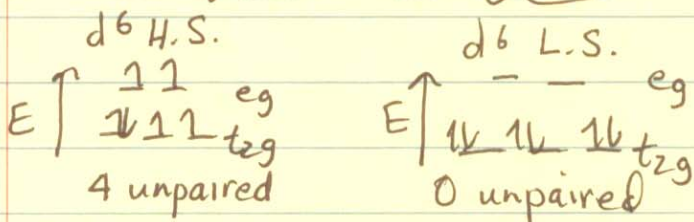 d6 H.S.
E ↑ 1 1 eg
1↓ 1 1 t2g
4 unpaired
d6 L.S.
E ↑ — — eg
1↓ 1↓ 1↓ t2g
0 unpaired